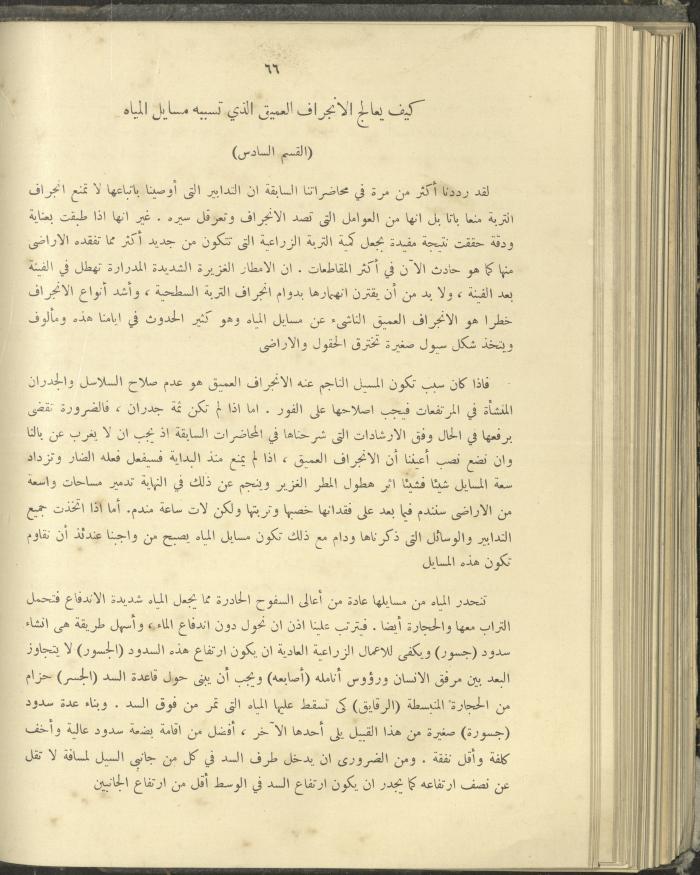 ٦٦
كيف يعالج الانجراف العميق الذي تسببه مسايل المياه
(القسم السادس)
لقد رددنا أكثر من مرة في محاضراتنا السابقة ان التدابير التى أوصينا باتباعها لا تمنع انجراف
التربة منعا باتا بل انها من العوامل التى تصد الانجراف وتعرقل سيره . غير انها اذا طبقت بعناية
ودقة حققت نتيجة مفيدة بجعل كمية التربة الزراعية التى تتكون من جديد أكثر مما تفقده الاراضى
منها كما هو حادث الآن في أكثر المقاطعات . ان الامطار الغزيرة الشديدة المدرارة تهطل في الفينة
بعد الفينة ، ولا بد من أن يقترن انهمارها بدوام انجراف التربة السطحية ، وأشد أنواع الانجراف
خطرا هو الانجراف العميق الناشىء عن مسايل المياه وهو كثير الحدوث في ايامنا هذه ومألوف
ويتخذ شكل سيول صغيرة تخترق الحقول والاراضى
فاذا كان سبب تكون المسيل الناجم عنه الانجراف العميق هو عدم صلاح السلاسل والجدران
المنشأة في المرتفعات فيجب اصلاحها على الفور . اما اذا لم تكن ثمة جدران ، فالضرورة تقضى
برفعها في الحال وفق الارشادات التى شرحناها في المحاضرات السابقة اذ يجب ان لا يغرب عن بالنا
وان نضع نصب أعيننا أن الانجراف العميق ، اذا لم يمنع منذ البداية فسيفعل فعله الضار وتزداد
سعة المسايل شيئا فشيئا اثر هطول المطر الغزير وينجم عن ذلك في النهاية تدمير مساحات واسعة
من الاراضى سنندم فيما بعد على فقدانها خصبها وتربتها ولكن لات ساعة مندم. أما اذا اتخذت جميع
التدابير والوسائل التى ذكرناها ودام مع ذلك تكون مسايل المياه يصبح من واجبنا عندئذ أن نقاوم
تكون هذه المسايل
تنحدر المياه من مسايلها عادة من أعالى السفوح الحادرة مما يجعل المياه شديدة الاندفاع فتحمل
التراب معها والحجارة أيضا . فيترتب علينا اذن ان نحول دون اندفاع الماء ، وأسهل طريقة هى انشاء
سدود (جسور) ويكفى للاعمال الزراعية العادية ان يكون ارتفاع هذه السدود (الجسور) لا يتجاوز
البعد بين مرفق الانسان ورؤوس أنامله (أصابعه) ويجب أن يبنى حول قاعدة السد (الجسر) حزام
من الحجارة المنبسطة (الرقايق) كى تسقط عليها المياه التى تمر من فوق السد . وبناء عدة سدود
(جسورة) صغيرة من هذا القبيل يلى أحدها الآخر ، أفضل من اقامة بضعة سدود عالية وأخف
كلفة وأقل نفقة . ومن الضرورى ان يدخل طرف السد في كل من جانبى السيل لمسافة لا تقل
عن نصف ارتفاعه كما يجدر ان يكون ارتفاع السد في الوسط أقل من ارتفاع الجانبين